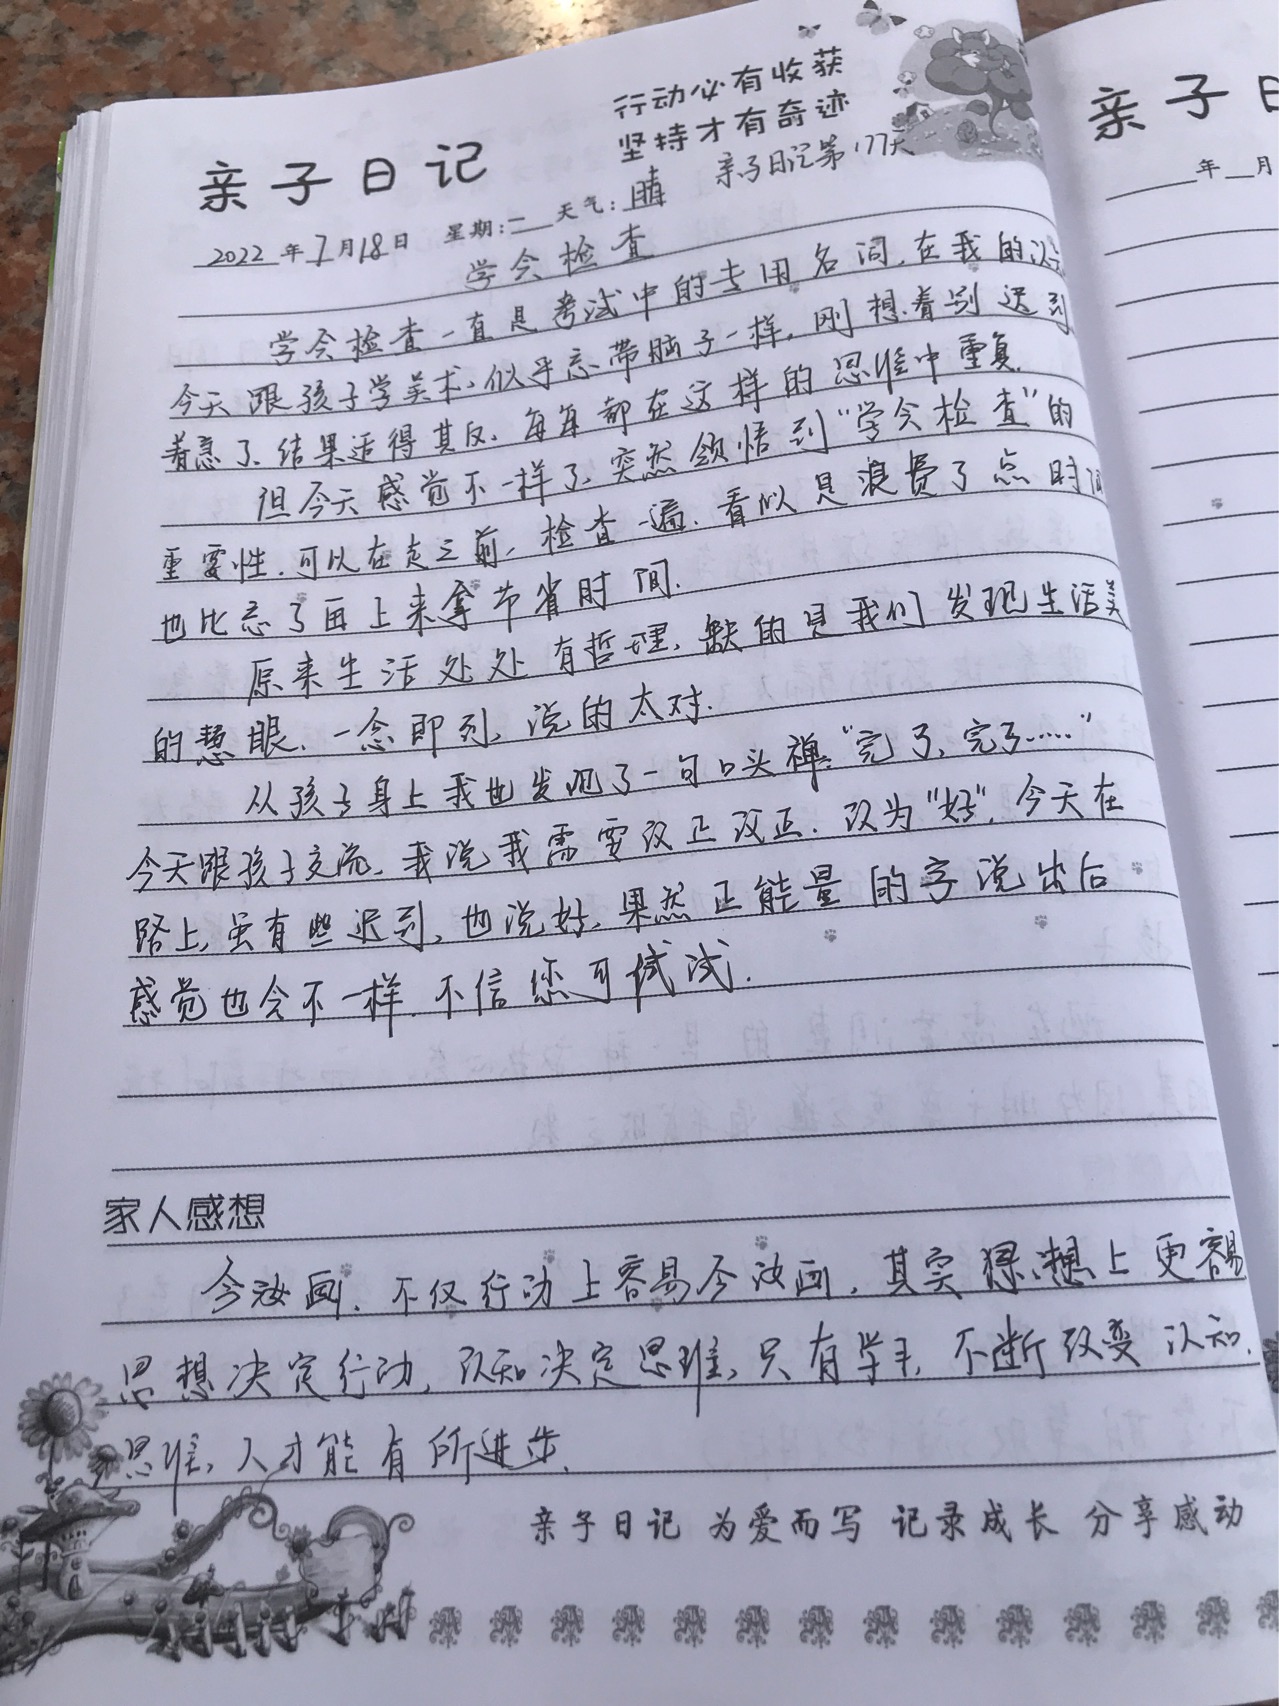 行动必有收获
坚持才有奇迹
亲子日记
亲子日记第177天
2022年7月18日 星期:二 天气:晴
学会检查
学会检查一直是考试中的专用名词,在我的认
今天跟孩子学美术,似乎忘带脑子一样,刚想着别迟到
着急了,结果适得其反,每每都在这样的思维中重复.
但今天感觉不一样了,突然领悟到“学会检查”的
重要性.可以在走之前,检查一遍.看似是浪费了点时间
也比忘了再上来拿节省时间.
原来生活处处有哲理,缺的是我们发现生活美
的慧眼,一念即到,说的太对.
从孩子身上我也发现了一句口头禅:“完了,完了……”
今天跟孩子交流,我说我需要改正改正.改为“好”,今天在
路上,虽有些迟到,也说好,果然正能量的字说出后
感觉也会不一样.不信您可试试.
家人感想
今汝画,不仅行动上容易今汝画,其实思想上更容易
思想决定行动,认知决定思维,只有学习,不断改变认知,
思维,人才能有所进步.
亲子日记 为爱而写 记录成长 分享感动
亲子日
年 月